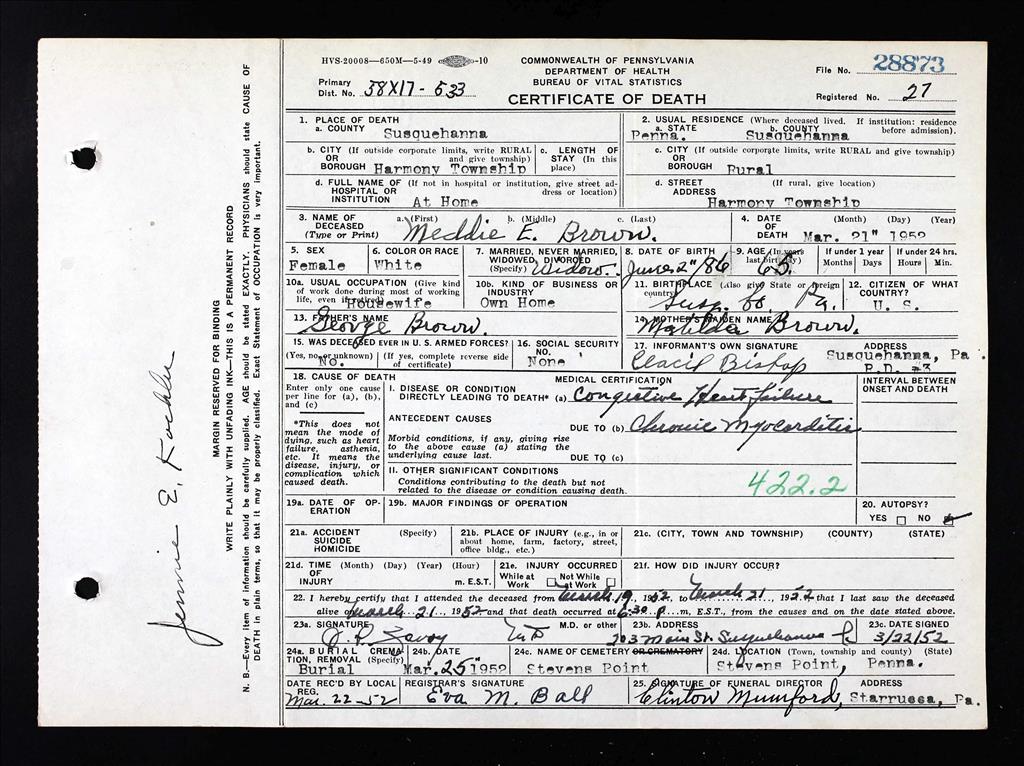 HVS-20008—650M—5-49 -10
COMMONWEALTH OF PENNSYLVANIA
DEPARTMENT OF HEALTH
BUREAU OF VITAL STATISTICS
CERTIFICATE OF DEATH
File No. 28873
Primary Dist. No. 58X17-533
Registered No. 27
1. PLACE OF DEATH
a. COUNTY Susquehanna
2. USUAL RESIDENCE (Where deceased lived. If institution: residence before admission).
a. STATE Penna. b. COUNTY Susquehanna
b. CITY (If outside corporate limits, write RURAL OR and give township) BOROUGH Harmony Township
c. LENGTH OF STAY (In this place)
c. CITY (If outside corporate limits, write RURAL and give township) OR BOROUGH Rural
d. FULL NAME OF (If not in hospital or institution, give street address or location) HOSPITAL OR INSTITUTION At Home
d. STREET (If rural, give location) ADDRESS Harmony Township
3. NAME OF DECEASED (Type or Print) a. (First) b. (Middle) c. (Last) Meddie E. Brown.
4. DATE OF DEATH (Month) (Day) (Year) Mar. 21" 1952
5. SEX Female
6. COLOR OR RACE White
7. MARRIED, NEVER MARRIED, WIDOWED, DIVORCED (Specify) Widow.
8. DATE OF BIRTH June 2" /86
9. AGE (In years last birthday) 65.
If under 1 year Months Days
If under 24 hrs. Hours Min.
10a. USUAL OCCUPATION (Give kind of work done during most of working life, even if retired) Housewife
10b. KIND OF BUSINESS OR INDUSTRY Own Home
11. BIRTHPLACE (Also give State or foreign country) Susq. Co Pa.
12. CITIZEN OF WHAT COUNTRY? U. S.
13. FATHER'S NAME George Brown.
14. MOTHER'S MAIDEN NAME Matilda Brown.
15. WAS DECEASED EVER IN U. S. ARMED FORCES? (Yes, no, or unknown) (If yes, complete reverse side of certificate) No.
16. SOCIAL SECURITY NO. None
17. INFORMANT'S OWN SIGNATURE Bishop
ADDRESS Susquehanna, Pa. R.D. #3
18. CAUSE OF DEATH
Enter only one cause per line for (a), (b), and (c)
*This does not mean the mode of dying, such as heart failure, asthenia, etc. It means the disease, injury, or complication which caused death.
MEDICAL CERTIFICATION
INTERVAL BETWEEN ONSET AND DEATH
I. DISEASE OR CONDITION DIRECTLY LEADING TO DEATH* (a) Congestive Heart failure
ANTECEDENT CAUSES
DUE TO (b) Chronic Myocarditis
Morbid conditions, if any, giving rise to the above cause (a) stating the underlying cause last.
DUE TO (c)
II. OTHER SIGNIFICANT CONDITIONS
Conditions contributing to the death but not related to the disease or condition causing death.
422.2
19a. DATE OF OPERATION
19b. MAJOR FINDINGS OF OPERATION
20. AUTOPSY?
YES NO
21a. ACCIDENT SUICIDE HOMICIDE (Specify)
21b. PLACE OF INJURY (e.g., in or about home, farm, factory, street, office bldg., etc.)
21c. (CITY, TOWN AND TOWNSHIP) (COUNTY) (STATE)
21d. TIME (Month) (Day) (Year) (Hour) OF INJURY m. E.S.T.
21e. INJURY OCCURRED While at Work Not While at Work
21f. HOW DID INJURY OCCUR?
22. I hereby certify that I attended the deceased from March 19, 1952, to March 21, 1952 that I last saw the deceased
alive on March 21, 1952 and that death occurred at 6:30 P.m., E.S.T., from the causes and on the date stated above.
23a. SIGNATURE M.D. or other
MD
23b. ADDRESS 203 Main St. Susquehanna Pa
23c. DATE SIGNED 3/22/52
24a. BURIAL CREMATION, REMOVAL (Specify) Burial
24b. DATE Mar. 25" 1952
24c. NAME OF CEMETERY OR CREMATORY Stevens Point
24d. LOCATION (Town, township and county) (State) Stevens Point, Penna.
DATE REC'D BY LOCAL REG. Mar. 22-52
REGISTRAR'S SIGNATURE Eva M. Ball
25. SIGNATURE OF FUNERAL DIRECTOR Clinton Mumford,
ADDRESS Starrucca, Pa.
MARGIN RESERVED FOR BINDING
WRITE PLAINLY WITH UNFADING INK—THIS IS A PERMANENT RECORD
N. B.—Every item of information should be carefully supplied. AGE should be stated EXACTLY. PHYSICIANS should state CAUSE OF
DEATH in plain terms, so that it may be properly classified. Exact Statement of OCCUPATION is very important.
Jennie E.